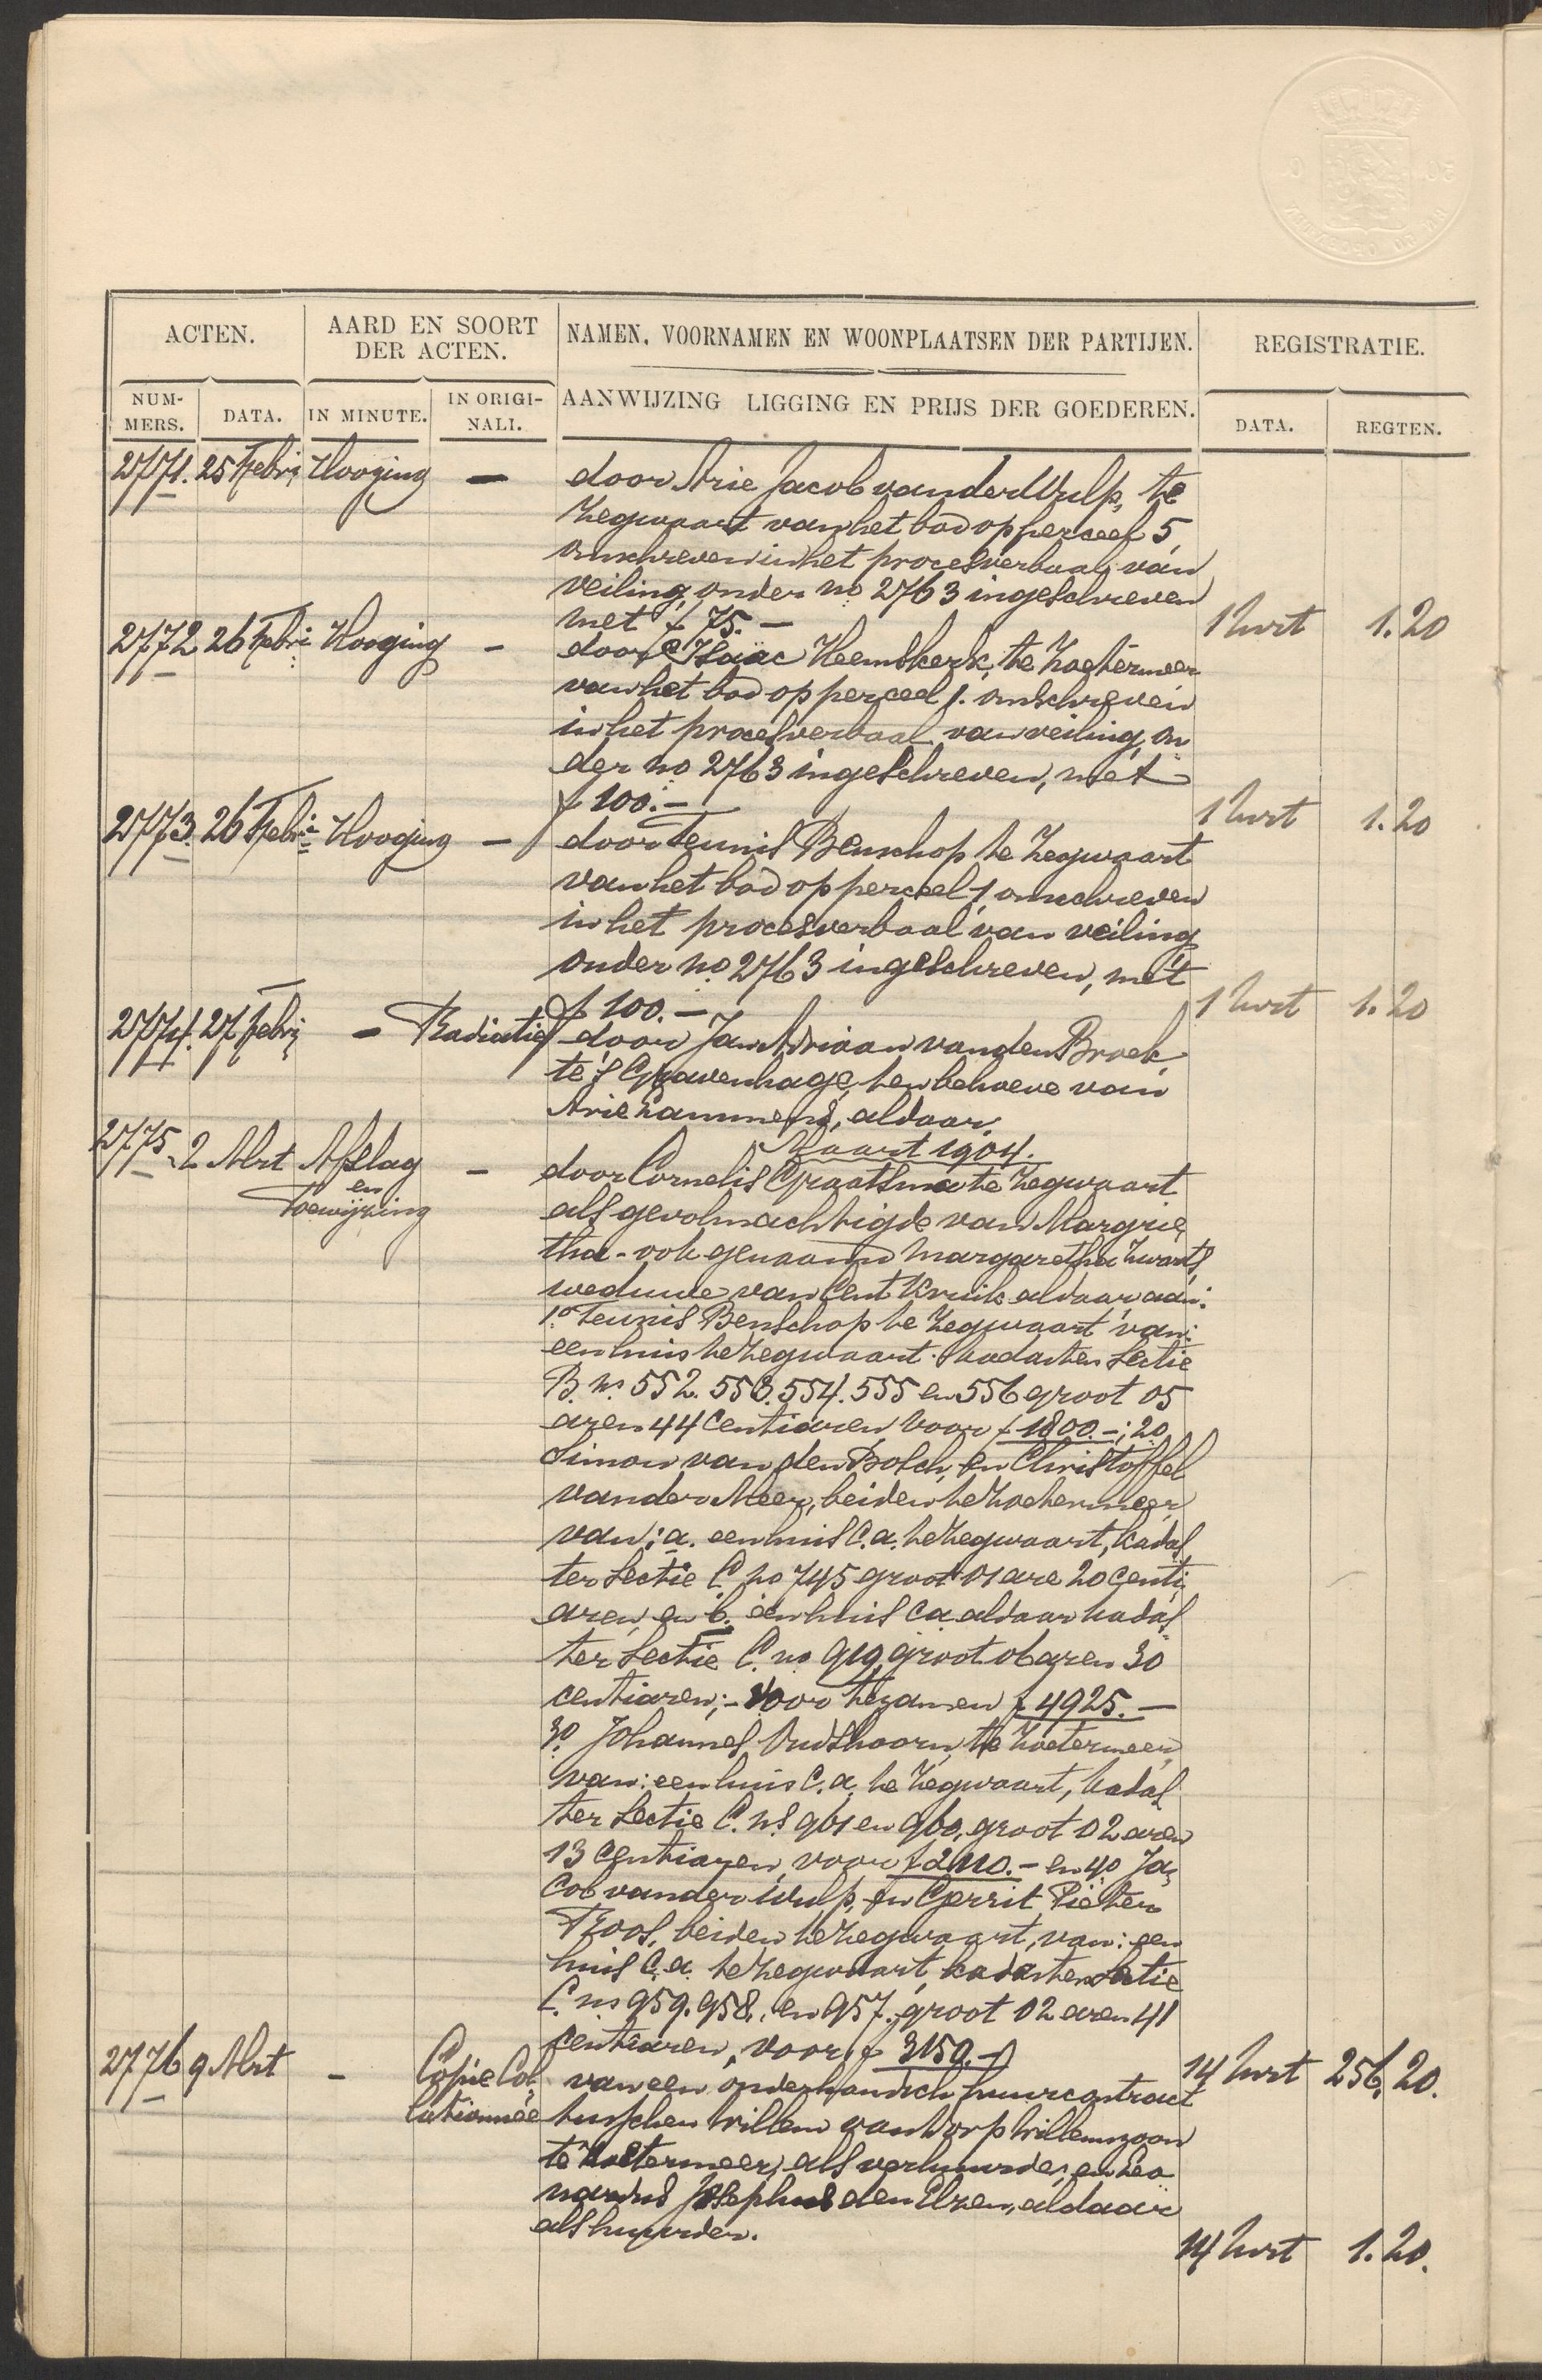 ACTEN.
AARD EN SOORT
DER ACTEN.
NAMEN, VOORNAMEN EN WOONPLAATSEN DER PARTIJEN.
REGISTRATIE.
NUM-
MERS.
DATA.
IN MINUTE.
IN ORIGI-
NALI.
AANWIJZING LIGGING EN PRIJS DER GOEDEREN.
DATA.
REGTEN.
2771. 25 Febri Hooging — door Arie Jacob van der Wulp, te
Zegwaart van het bod op perceel 5,
omschreven in het procesverbaal van
veiling, onder no 2763 ingeschreven
met f 75.— 1 Mrt 1.20
2772 26 Febri Hooging — door Isaäc Heemskerk, te Zoetermeer
van het bod op perceel 1. omschreven
in het procesverbaal van veiling, on
der no 2763 ingeschreven, met
f 100.— 1 Mrt 1.20
2773. 26 Febri Hooging — door Teunis Benschop te Zegwaart
van het bod op perceel 1, omschreven
in het procesverbaal van veiling
onder no 2763 ingeschreven, met
f 100.— 1 Mrt 1.20
2774. 27 Febri — Radiatie door Jan Adriaan van den Broek,
te 's Gravenhage, ten behoeve van
Arie Lammens, aldaar.
Maart 1904.
2775 2 Mrt Afslag — door Cornelis Graatsma te Zegwaart
en
Toewijzing
als gevolmachtigde van Margrie
tha - ook genaamd Margaretha Zwarts,
weduwe van Cent Kruik aldaar, aan:
1o Teunis Benschop te Zegwaart van:
een huis te Zegwaart. kadaster Sectie
B. ns 552. 553. 554. 555 en 556 groot 05
aren 44 centiaren voor f 1800.—; 2o
Simon van den Bosch, en Christoffel
van der Meer, beiden te Zoetermeer,
van: a. een huis c.a. te Zegwaart, kadas
ter Sectie C no 745 groot 01 are 20 centi
aren, en b. een huis c.a. aldaar kadas
ter Sectie C. no 919 groot 06 aren 30
centiaren; - voor tezamen f 4925.—
3o Johannes Oudshoorn, te Zoetermeer,
van: een huis c.a. te Zegwaart, kadas
ter Sectie C. ns 961 en 960, groot 02 aren
13 centiaren, voor f 2110.— en 4o Ja
cob van der Wulp, en Gerrit Pieter
Roos, beiden te Zegwaart, van: een
huis c.a. te Zegwaart, kadaster Sectie
C. ns 959. 958., en 957. groot 02 aren 41
centiaren, voor f 3150.— 14 Mrt 256.20.
2776 9 Mrt — Copie Col van een onderhandsch huurcontract
lationnée tusschen Willem van Dorp Willemzoon
te Zoetermeer, als verhuurder, en Leo
nardus Josephus den Elzen, aldaar
als huurder. 14 Mrt 1.20.